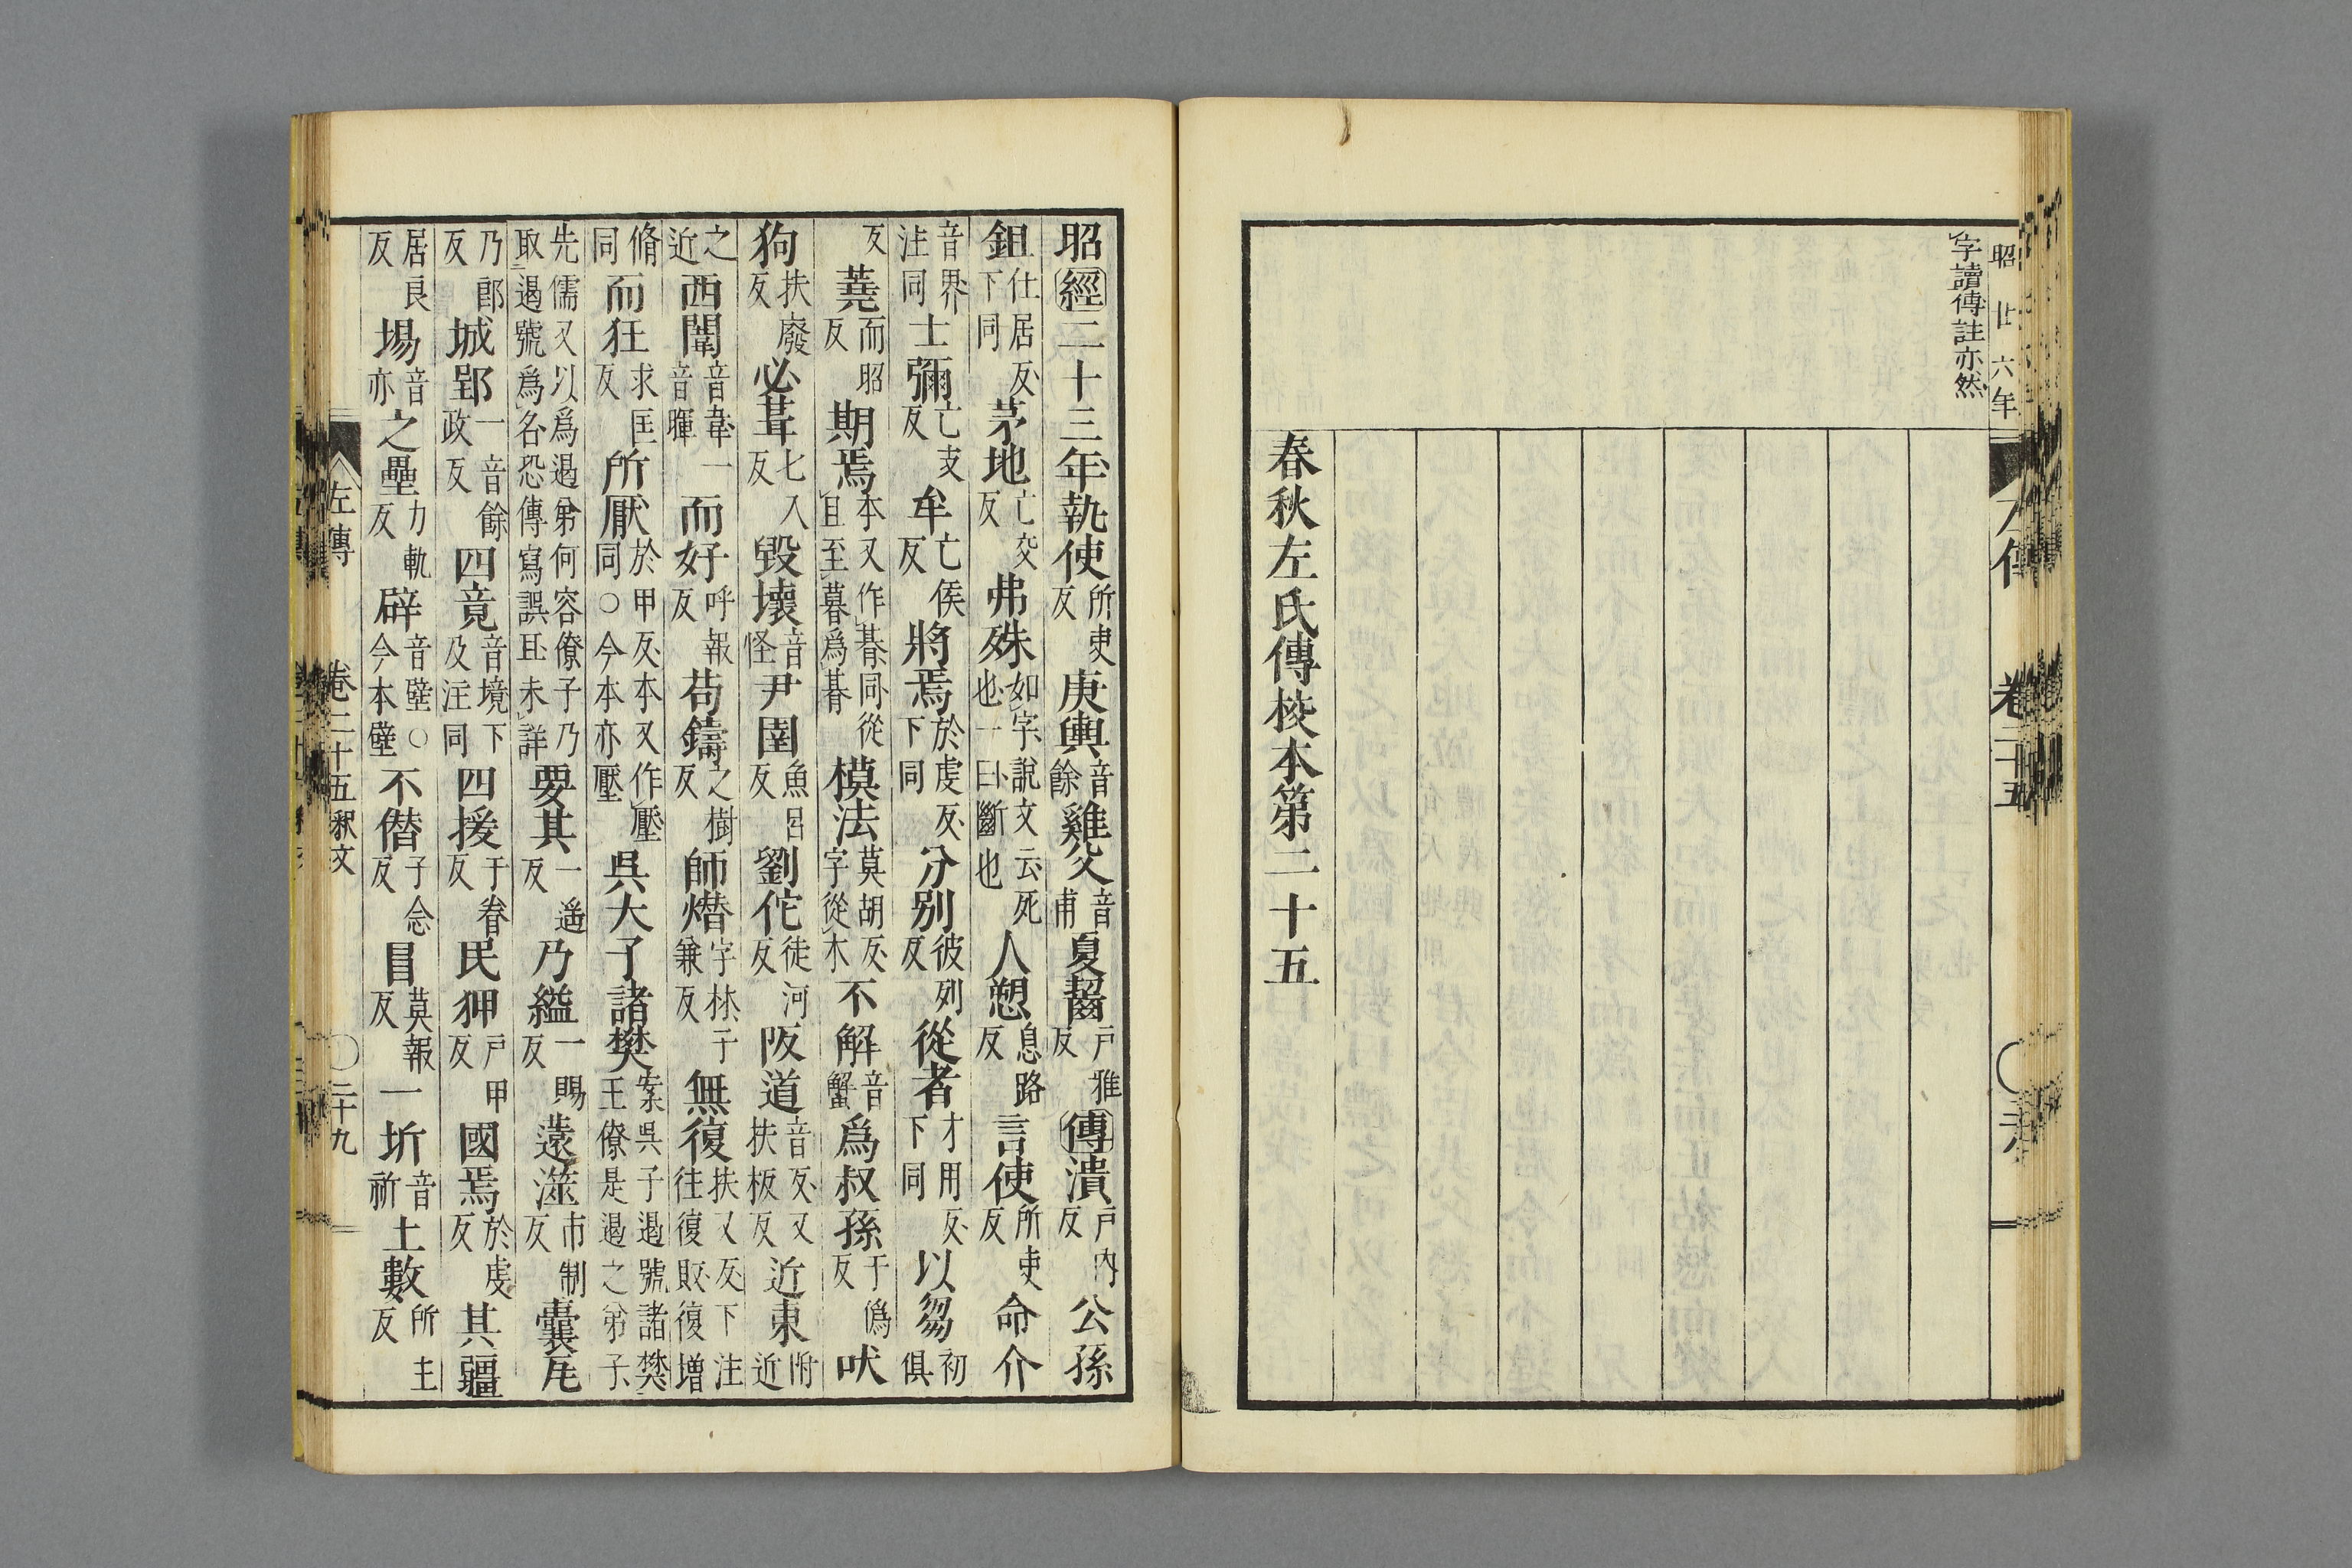 昭廿六年
字讀傳註亦然
春秋左氏傳校本第二十五
昭經二十三年執使所吏反庚輿音餘雞父音甫夏齧戶雅反傳潰戶內反公孫
鉏仕居反下同茅地亡交反弗殊如字說文云死也一曰斷也人愬息路反言使所吏反命介
音界注同士彌亡支反牟亡侯反將焉於虔反下同分別彼列反從者才用反下同以芻初俱
反蕘而昭反期焉本又作朞同從且至暮爲朞模法莫胡反字從木不解音蟹爲叔孫于僞反吠
狗扶廢反必葺七入反毀壞音怪尹圉魚呂反劉佗徒河反阪道音反又扶板反近東附近
之近西闈音韋一音暉而好呼報反苟鑄之樹反師熸字林子兼反無復扶又反下注往復敗復增
脩同而狂求匡反所厭於甲反本又作壓同○今本亦壓吳大子諸樊案吳子遏號諸樊王僚是遏之弟子
先儒又以爲遏弟何容僚子乃取遏號爲名恐傳寫誤耳未詳要其一遙反乃縊一賜反薳澨市制反囊瓦
乃郎反城郢一音餘政反四竟音境下及注同四援于眷反民狎戶甲反國焉於虔反其疆
居良反埸音亦之壘力軌反辟音壁○今本壁不僭子念反耄莫報反一圻音祈土數所主反
左傳 卷二十五釈文 ○二十九